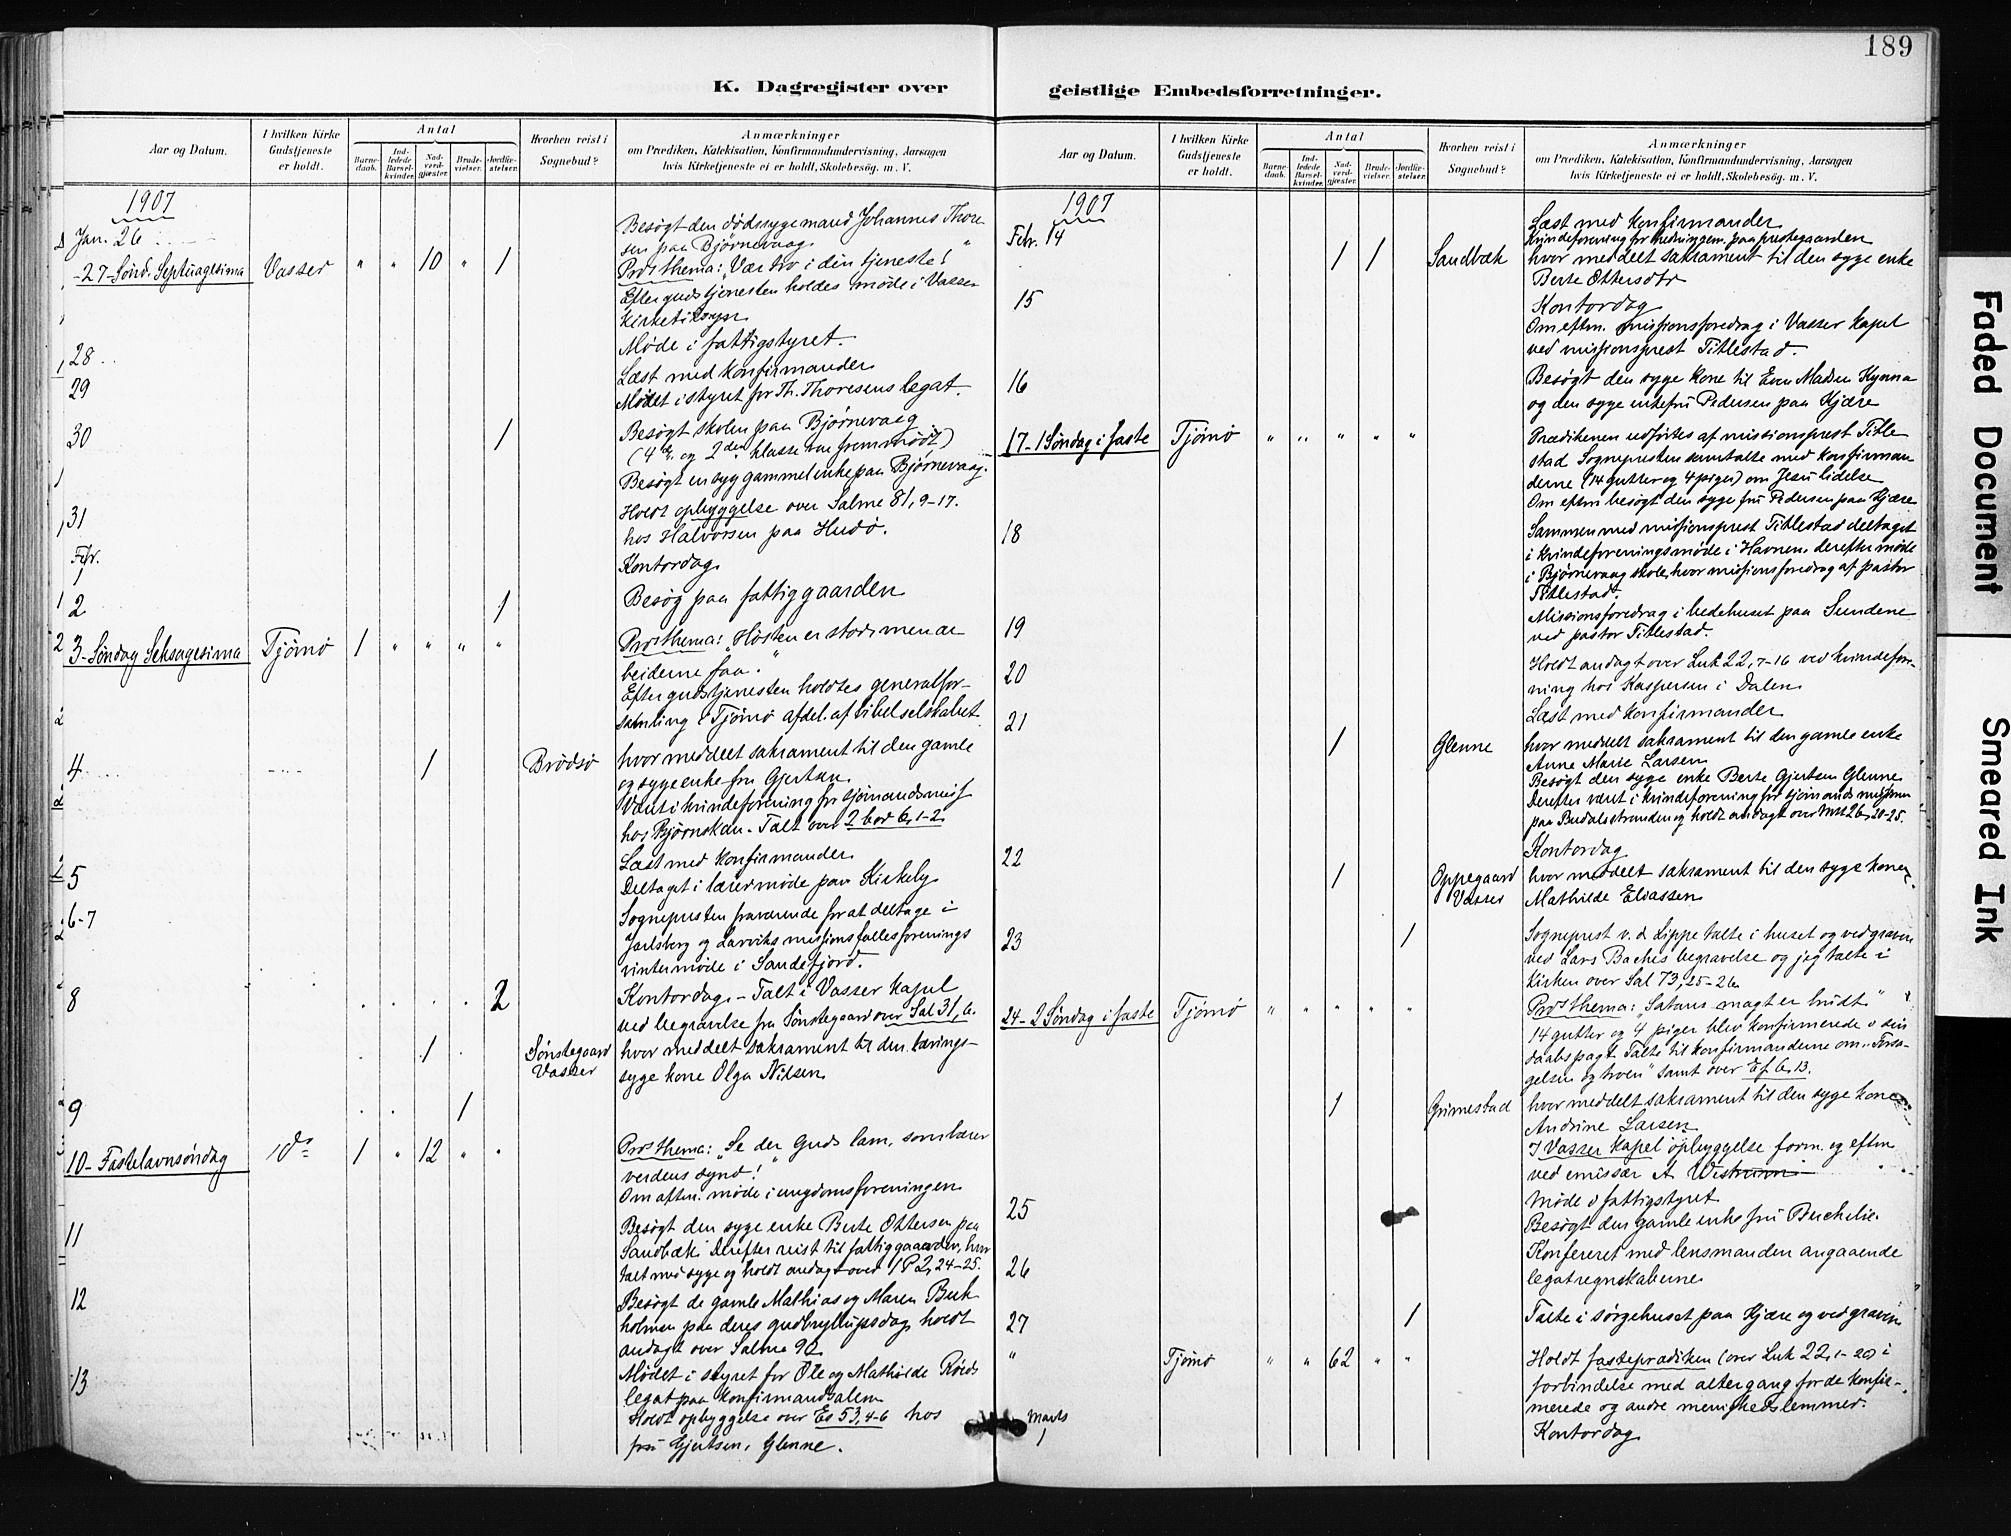 189
K. Dagregister over
Aar og Datum.
I hvilken Kirke Gudstjeneste er holdt.
Antal
Barne-daab.
Ind-ledede Barsel-kvinder.
Nad-verd-gjæster.
Brude-vielser.
Jordfæ-stelser.
Hvorhen reist i Sognebud?
Anmærkninger
om Prædiken, Katekisation, Konfirmandundervisning, Aarsagen
hvis Kirketjeneste ei er holdt, Skolebesøg. m. V.
1907
Jan. 26 Besøgt den dødssyge mand Johannes Thore
sen paa Bjørnevaag.
-27- Sønd. Septuagesima Vasser " " 10 " 1 Præs thema: "Vær tro i din tjeneste!"
Efter gudstjenesten holdes møde i Vasser
Kirketilsyn
28 Møde i fattigstyret.
29 Læst med konfirmander
Mødet i styret for Th. Thoresens legat.
30 1 Besøgt skolen paa Bjørnevaag
(4de og 2den klasse var fremmødt)
Besøgt en syg gammel enke paa Bjørnevaag.
31 Holdt opbyggelse over Salme 81, 9-17.
hos Halvorsen paa Hudø.
Febr.
1 Kontordag
2 1 Besøg paa fattiggaarden
3- Søndag Seksagesima Tjømø 1 " " " " Præs thema: "Høsten er stor, men ar
beiderne faa."
Efter gudstjenesten holdtes generalfor-
samling i Tjømø afdel. af bibelselskabet
4 1 Brødsø hvor meddelt sakrament til den gamle
og syge enke fru Gjertsen.
Været i kvindeforening for sjømandsmis.
hos Bjørnskau. Talt over 2 Cor 6, 1-2
5 Læst med konfirmander
Deltaget i lærermøde paa Kirkeby
6-7 Sognepresten fraværende for at deltage i
Jarlsberg og Larviks missionsfællesforenings
vintermøde i Sandefjord.
8 2 Kontordag - Talt i Vasser kapel
ved begravelse fra Sønstegaard over Sal 31, 6.
1 Sønstegaard Vasser hvor meddelt sakrament til den tærings-
syge kone Olga Nilsen
9 1
10- Fastelavnsøndag do 1 " 12 " " Præs thema: "Se der Guds lam, som bærer
verdens synd!"
Om aften. møde i ungdomsforeningen
11 Besøgt den syge enke Berte Ottersen paa
Sandbæk Derefter reist til fattiggaarden, hvor
talt med syge og holdt andagt over 1 P 2, 24-25.
12 Besøgt de gamle Mathias og Maren Buk
holmen paa deres guldbryllupsdag, holdt
andagt over Salme 90
13 Mødet i styret for Ole og Mathilde Røeds
legat paa konfirmandsalen
Holdt opbyggelse over Es 53, 4-6 hos
fru Gjertsen, Glenne.
geistlige Embedsforretninger.
Aar og Datum.
I hvilken Kirke Gudstjeneste er holdt.
Antal
Barne-daab.
Ind-ledede Barsel-kvinder.
Nad-verd-gjæster.
Brude-vielser.
Jordfæ-stelser.
Hvorhen reist i Sognebud?
Anmærkninger
om Prædiken, Katekisation, Konfirmandundervisning, Aarsagen
hvis Kirketjeneste ei er holdt, Skolebesøg. m. V.
1907
Febr. 14 Læst med konfirmander
Kvindeforening for hedningem. paa prestegaarden
1 1 Sandbæk hvor meddelt sakrament til den syge enke
Berte Ottersdtr
15 Kontordag
Om eftm. missionsforedrag i Vasser kapel
ved missionsprest Titlestad.
16 Besøgt den syge kone til Even Madsen Kynna
og den syge enkefru Pedersen paa Kjære
17- 1 Søndag i faste Tjømø " " " " " Prædikenen udførtes af missionsprest Title
stad Sognepresten samtalte med konfirman
derne (14 gutter og 4 piger) om Jesu lidelse
Om eftm besøgt den syge fru Pedersen paa Kjære
18 Sammen med missionsprest Titlestad deltaget
i kvindeforeningsmøde i Havnen, derefter møde
i Bjørnevaag skole, hvor missionsforedrag af pastor
Titlestad.
19 Missionsforedrag i bedehuset paa Sundene
ved pastor Titlestad.
20 Holdt andagt over Luk 22, 7-16 ved kvindefor-
ning hos Kaspersen i Dalen
21 Læst med konfirmander
1 Glenne hvor meddelt sakrament til den gamle enke
Anne Marie Larsen
Besøgt den syge enke Berte Gjertsen Glenne
Derefter været i kvindeforening for sjømandsmissionen
paa Budalsstranden og holdt andagt over Mt 26, 20-25.
22 Kontordag
1 Oppegaard Vasser hvor meddelt sakrament til den syge kone
Mathilde Eliassen
23 1 Sogneprest v. d. Lippe talte i huset og ved graven
ved Lars Baches begravelse og jeg talte i
kirken over Sal 73, 25-26
24- 2 Søndag i faste Tjømø " " " " " Præs thema: Satans magt er brudt"
14 gutter og 4 piger blev konfirmerede i sin
daabspagt Talte til konfirmanderne om "Forsa-
gelsen og troen" samt over Ef 6, 13.
1 Grimestad hvor meddelt sakrament til den syge kone
Andrine Larsen
I Vasser kapel opbyggelse form. og eftm
ved emissær A. Wistrumi
25 Møde i fattigstyret
Besøgt den gamle enkefru Buchelie.
26 Konfereret med lensmanden angaaende
legatregnskaberne
27 1 Talte i sørgehuset paa Kjære og ved graven
" Tjømø " " 62 " " Holdt fasteprædiken (over Luk 22, 1-20) i
forbindelse med altergang for de konfir-
merede og andre menighedslemmer.
Marts
1 Kontordag
Faded Document
Smeared Ink